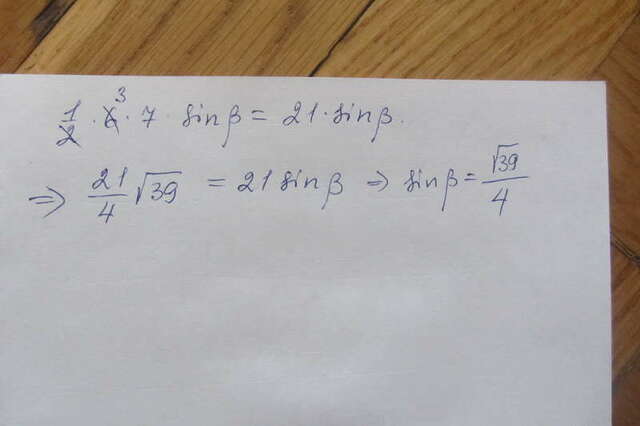 1/2 · 6 3 · 7 · sin β = 21 · sin β.
⇒ 21/4 √39 = 21 sin β ⇒ sin β = √39/4